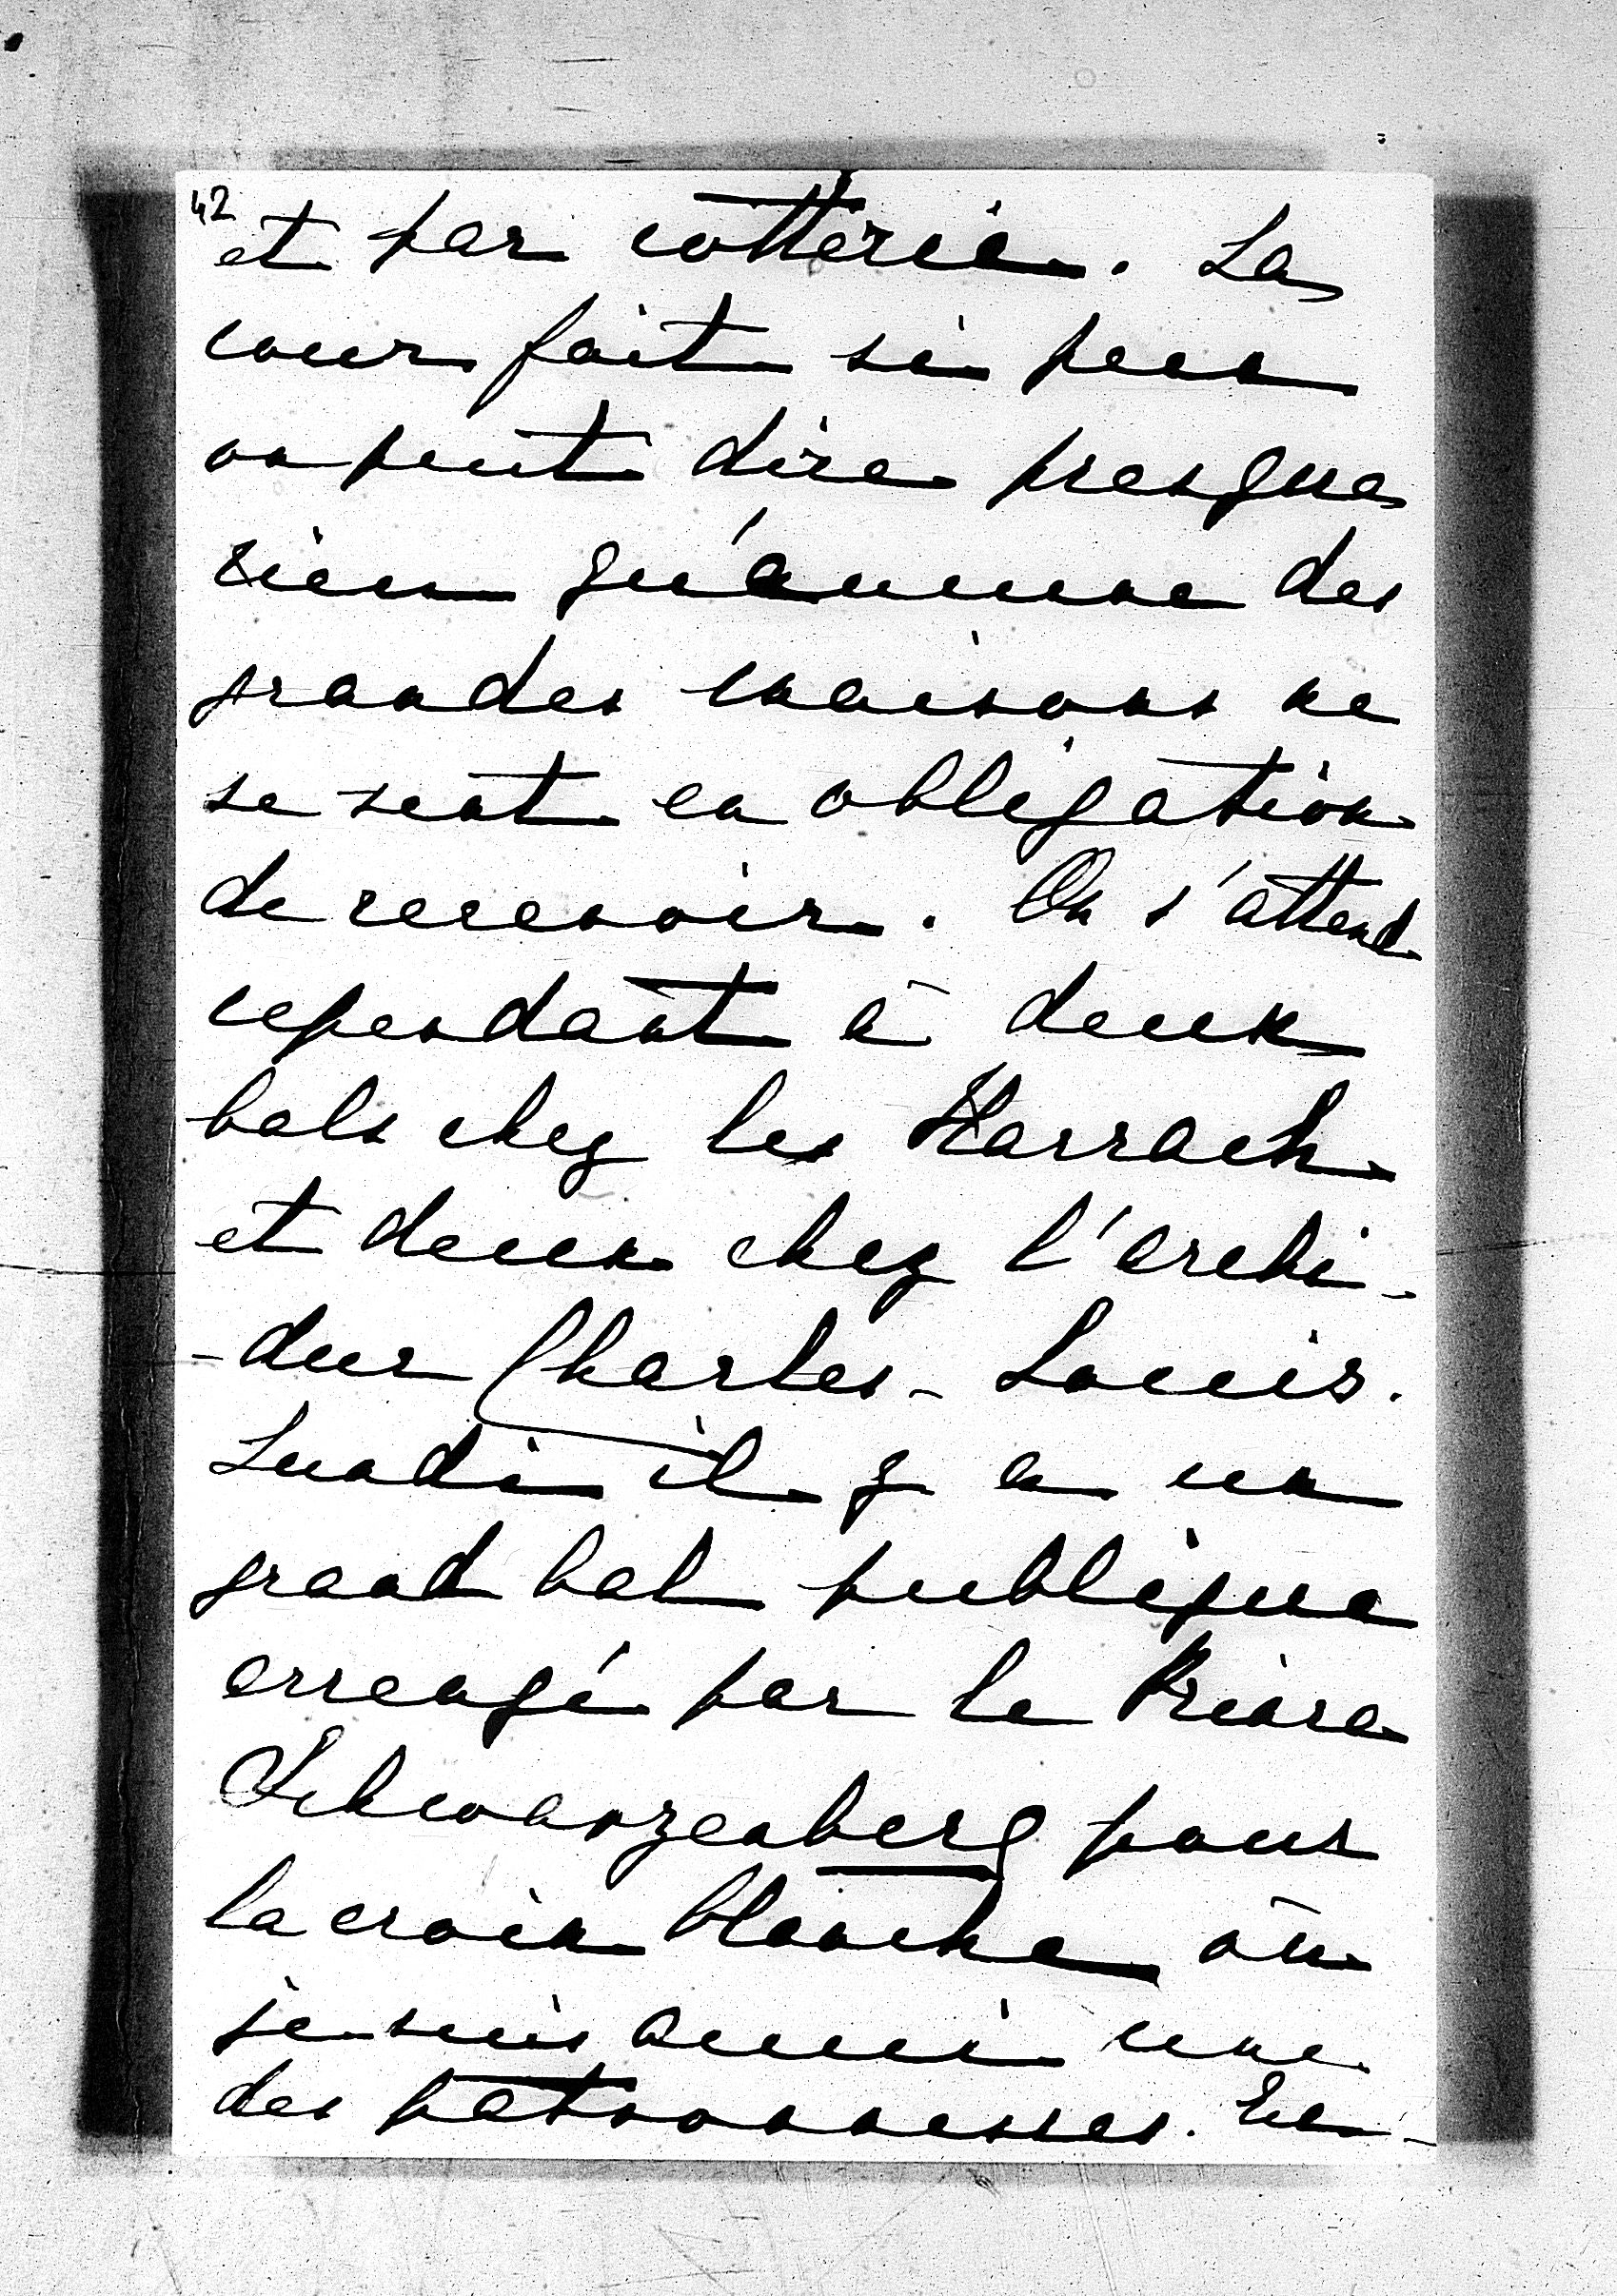 42
et par cotterie. La
cour fait si peu
on peut dire presque
rien qu'aucune des
grandes maisons ne
se sent en obligation
de recevoir. On s'attend
cependant à deux
bals chez les Harrach
et deux chez l'archi-
-duc Charles-Louis.
Lundi il y a un
grand bal publique
arrangé par le Prince
Schwarzenberg pour
la croix blanche où
je suis aussi une
des patronnesses. En-